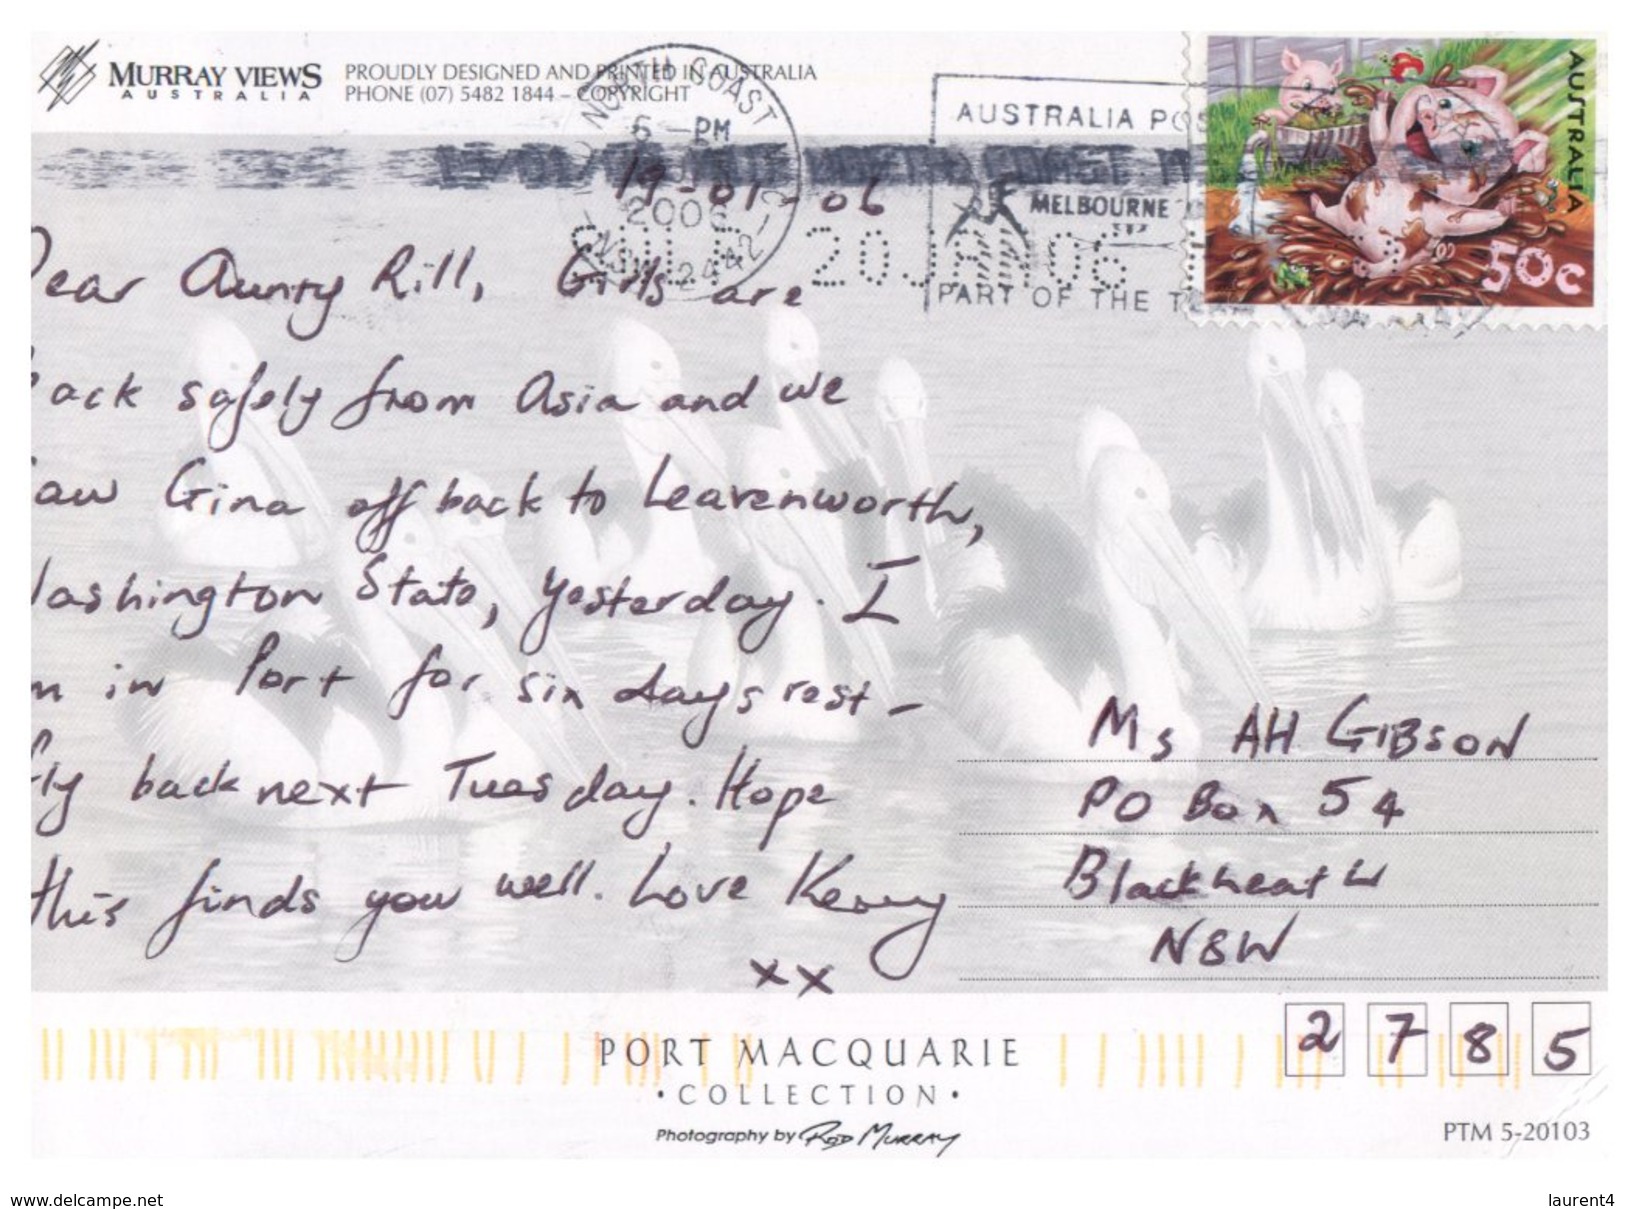 MURRAY VIEWS
AUSTRALIA
PROUDLY DESIGNED AND PRINTED IN AUSTRALIA
PHONE (07) 5482 1844 – COPYRIGHT
NORTH COAST
6 – PM
2006
NSW 2442
AUSTRALIA POS
MELBOURNE
PART OF THE TE
20JAN06
AUSTRALIA
50c
19-01-06
Dear Aunty Rill, Girls are
back safely from Asia and we
saw Gina off back to Leavenworth,
Washington State, yesterday. I
m in Port for six days rest –
fly back next Tuesday. Hope
this finds you well. Love Kerry
xx
Ms AH GIBSON
PO Box 54
Blackheath
NSW
2785
PORT MACQUARIE
• COLLECTION •
Photography by ROD MURRAY
PTM 5-20103
www.delcampe.net
laurent4